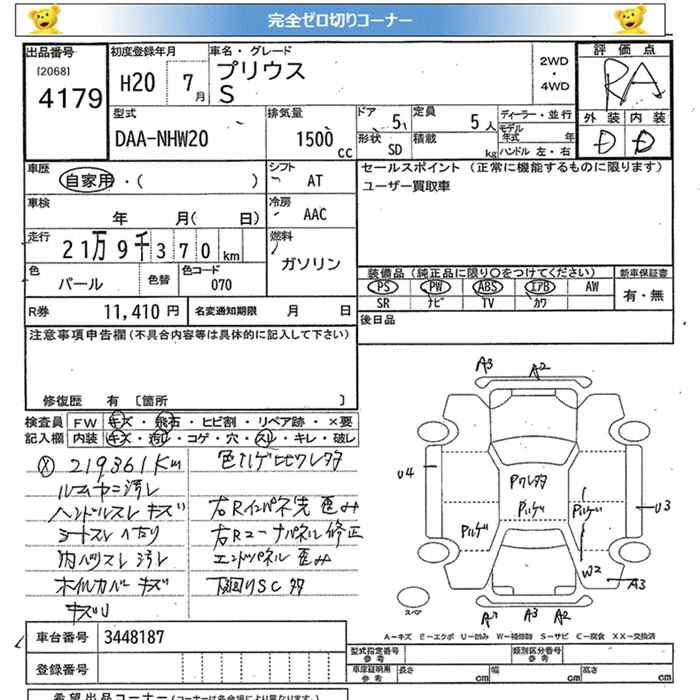 完全ゼロ切りコーナー
出品番号
[2068]
4179
初度登録年月
H20 7月
車名・グレード
プリウス
S
2WD
・
4WD
評価点
RA
外装 内装
D D
型式
DAA-NHW20
排気量
1500 cc
ドア 5
定員 5人
形状 SD
積載 kg
ディーラー・並行
モデル年式 年
ハンドル 左・右
車歴
自家用・( )
シフト AT
車検
年 月( 日)
冷房 AAC
走行
21万9千370km
燃料
ガソリン
色 パール
色替
色コード 070
R券 11,410円
名変通知期限 月 日
セールスポイント (正常に機能するものに限ります)
ユーザー買取車
装備品(純正品に限り○をつけてください)
PS PW ABS エアB AW
SR ナビ TV カワ
新車保証書
有・無
後日品
注意事項申告欄(不具合内容等は具体的に記入して下さい)
修復歴 有 〔箇所 〕
検査員記入欄
FW キズ・飛石・ヒビ割・リペア跡・×要
内装 キズ・汚れ・コゲ・穴・スレ・キレ・破レ
219361Km
ルームヤニ汚レ
ハンドルスレ キズ
シートスレ ヘタリ
内ハリスレ 汚レ
ホイルカバーキズ
キズU
色ハゲ ヒビワレ多
右Rインパネ先 歪み
右Rコーナーパネル 修正
エンドパネル 歪み
下回りSC多
A3 A2
U4
Pワレ多
Pハゲ
Pハゲ
Pハゲ
U3
W2
A3
A3 A2
スペア
A-キズ E-エクボ U-凹み W-補修跡 S-サビ C-腐食 XX-交換済
車台番号 3448187
登録番号
型式指定番号 参考
類別区分番号 参考
車庫証明用 参考
長さ cm 幅 cm 高さ cm
希望出品コーナー